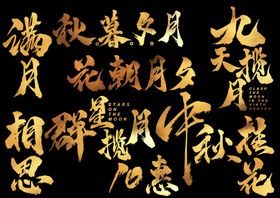 满月
秋暮夕月
花朝月夕
九天揽月
CLASP THE
MOON
IN THE
NINTH
HEAVEN
相思
群星揽月
STARS
ON THE
MOON
10惠
中秋
桂花